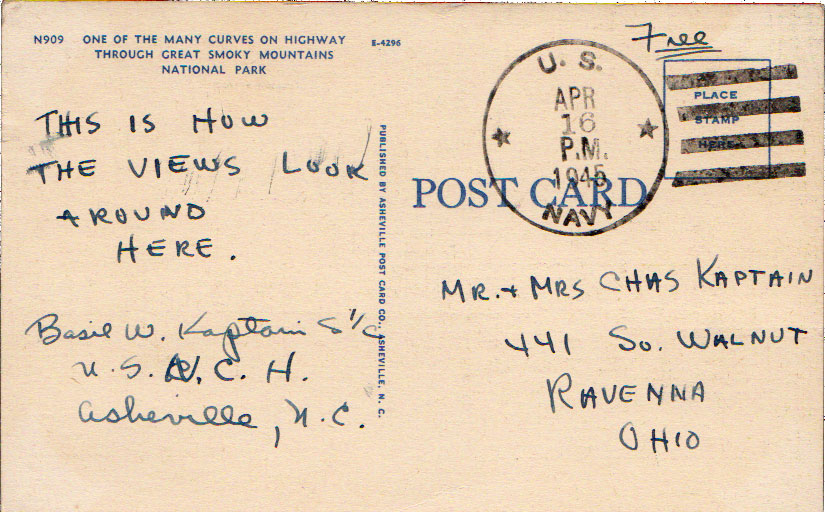 N909 ONE OF THE MANY CURVES ON HIGHWAY
THROUGH GREAT SMOKY MOUNTAINS
NATIONAL PARK
E-4296
THIS IS HOW
THE VIEWS LOOK
AROUND
HERE.
Basil W. Kaptain S 1/c
U.S.N.C.H.
Asheville, N.C.
PUBLISHED BY ASHEVILLE POST CARD CO., ASHEVILLE, N. C.
Free
PLACE
STAMP
HERE
U. S.
APR
16
P.M.
1945
NAVY
POST CARD
MR. + MRS CHAS KAPTAIN
441 So. WALNUT
RAVENNA
OHIO